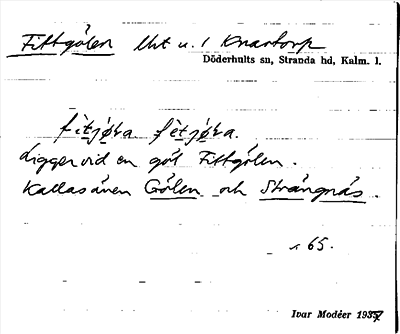 Fittgölen lht u. 1 Knartorp
Döderhults sn, Stranda hd, Kalm. l.
fìtjø̀ḷa fètjø̀ḷa.
Ligger vid en göl Fittgölen.
Kallas även Gölen och Strängnäs.
n 65.
Ivar Modéer 1937